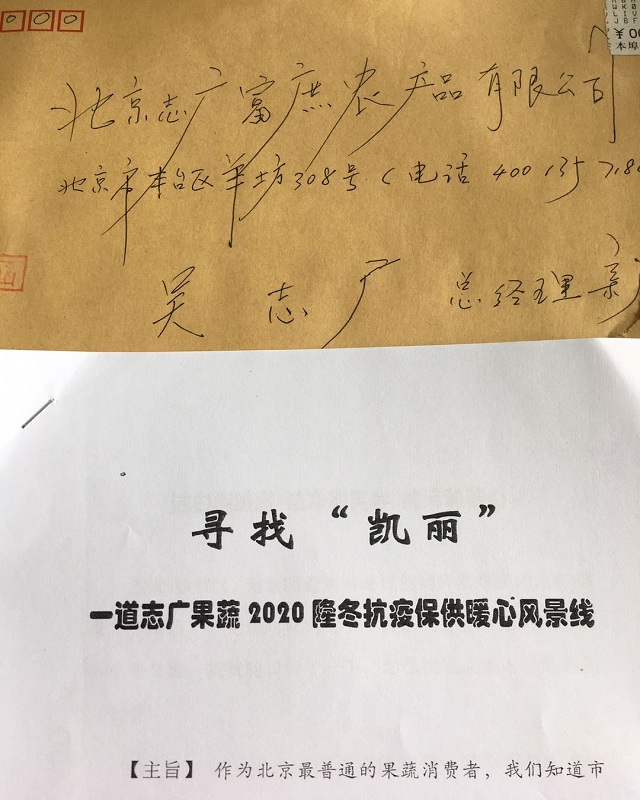 ¥ 00
本埠
北京志广富庶农产品有限公司
北京市丰台区羊坊308号（电话 400 135
吴志广 总经理 亲
寻找“凯丽”
一道志广果蔬2020隆冬抗疫保供暖心风景线
【主旨】 作为北京最普通的果蔬消费者，我们知道市